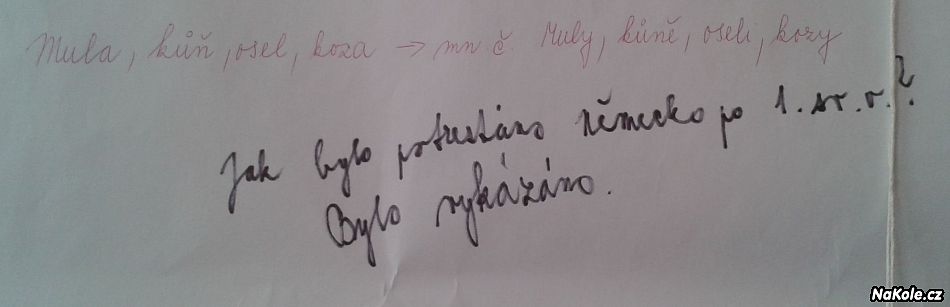 Mula, kůň, osel, koza → mn č. Muly, kůně, oseli, kozy
Jak bylo potrestáno německo po 1. sv. v.?
Bylo vykázáno.
NaKole.cz